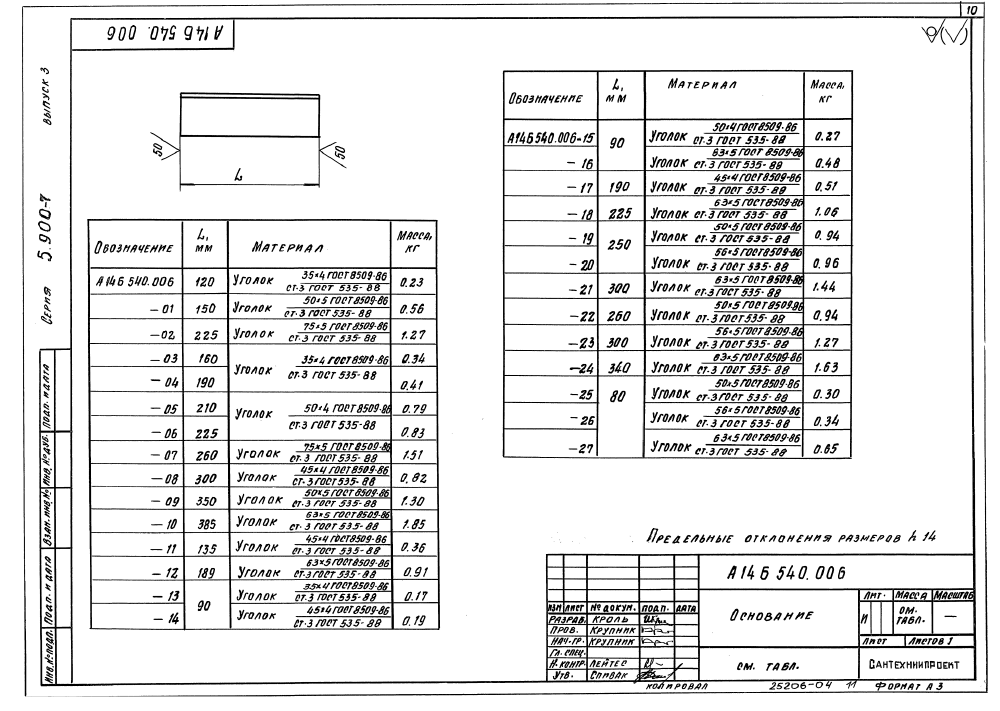 10
А14Б 540. 006
Выпуск 3
5.900-7
Серия
50
50
L
Обозначение L, мм Материал Масса, кг
А14Б 540.006 120 Уголок 35×4 ГОСТ 8509-86 / ст.3 ГОСТ 535-88 0.23
-01 150 Уголок 50×5 ГОСТ 8509-86 / ст.3 ГОСТ 535-88 0.56
-02 225 Уголок 75×5 ГОСТ 8509-86 / ст.3 ГОСТ 535-88 1.27
-03 160 Уголок 35×4 ГОСТ 8509-86 / ст.3 ГОСТ 535-88 0.34
-04 190 0.41
-05 210 Уголок 50×4 ГОСТ 8509-86 / ст.3 ГОСТ 535-88 0.79
-06 225 0.83
-07 260 Уголок 75×5 ГОСТ 8509-86 / ст.3 ГОСТ 535-88 1.51
-08 300 Уголок 45×4 ГОСТ 8509-86 / ст.3 ГОСТ 535-88 0.82
-09 350 Уголок 50×5 ГОСТ 8509-86 / ст.3 ГОСТ 535-88 1.30
-10 385 Уголок 63×5 ГОСТ 8509-86 / ст.3 ГОСТ 535-88 1.85
-11 135 Уголок 45×4 ГОСТ 8509-86 / ст.3 ГОСТ 535-88 0.36
-12 189 Уголок 63×5 ГОСТ 8509-86 / ст.3 ГОСТ 535-88 0.91
-13 90 Уголок 35×4 ГОСТ 8509-86 / ст.3 ГОСТ 535-88 0.17
-14 Уголок 45×4 ГОСТ 8509-86 / ст.3 ГОСТ 535-88 0.19
Обозначение L, мм Материал Масса, кг
А14Б 540.006-15 90 Уголок 50×4 ГОСТ 8509-86 / ст.3 ГОСТ 535-88 0.27
-16 Уголок 63×5 ГОСТ 8509-86 / ст.3 ГОСТ 535-88 0.48
-17 190 Уголок 45×4 ГОСТ 8509-86 / ст.3 ГОСТ 535-88 0.51
-18 225 Уголок 63×5 ГОСТ 8509-86 / ст.3 ГОСТ 535-88 1.06
-19 250 Уголок 50×5 ГОСТ 8509-86 / ст.3 ГОСТ 535-88 0.94
-20 Уголок 56×5 ГОСТ 8509-86 / ст.3 ГОСТ 535-88 0.96
-21 300 Уголок 63×5 ГОСТ 8509-86 / ст.3 ГОСТ 535-88 1.44
-22 260 Уголок 50×5 ГОСТ 8509-86 / ст.3 ГОСТ 535-88 0.94
-23 300 Уголок 56×5 ГОСТ 8509-86 / ст.3 ГОСТ 535-88 1.27
-24 340 Уголок 63×5 ГОСТ 8509-86 / ст.3 ГОСТ 535-88 1.63
-25 80 Уголок 50×5 ГОСТ 8509-86 / ст.3 ГОСТ 535-88 0.30
-26 Уголок 56×5 ГОСТ 8509-86 / ст.3 ГОСТ 535-88 0.34
-27 Уголок 63×5 ГОСТ 8509-86 / ст.3 ГОСТ 535-88 0.65
Предельные отклонения размеров h 14
Инв.№подл. Подп. и дата Взам. инв.№ Инв.№ дуб. Подп. и дата
А14Б 540.006
Изм Лист № докум. Подп. Дата
Разраб. Кроль
Пров. Крупник
Нач.гр. Крупник
Гл. спец.
Н.контр. Лейтес
Утв. Спивак
Основание
см. табл.
Лит. Масса Масштаб
И см. табл. —
Лист Листов 1
Сантехниипроект
Копировал 25206-04 11 Формат А3